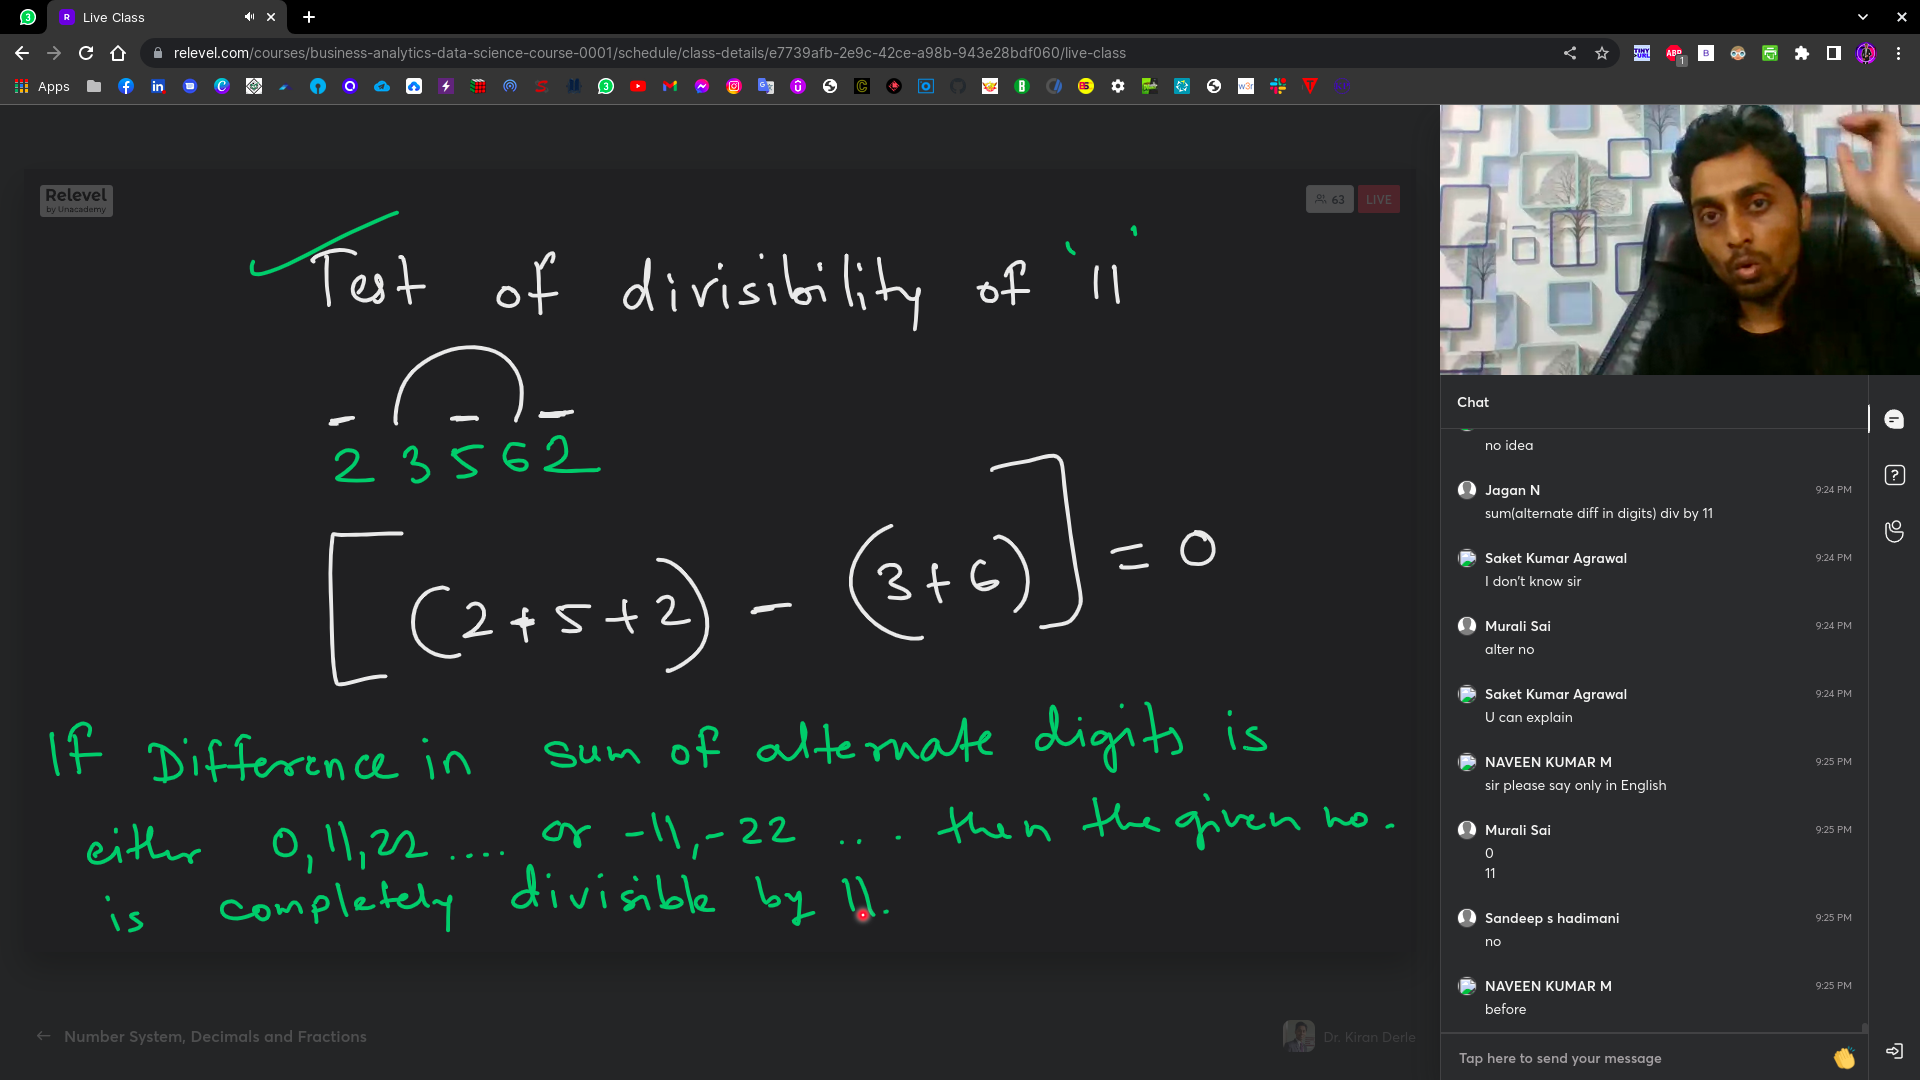 Live Class
relevel.com/courses/business-analytics-data-science-course-0001/schedule/class-details/e7739afb-2e9c-42ce-a98b-943e28bdf060/live-class
Apps
Relevel
by Unacademy
63
LIVE
Test of divisibility of '11'
2 3 5 6 2
[(2+5+2) - (3+6)] = 0
If Difference in sum of alternate digits is
either 0, 11, 22 .... or -11, -22 ... then the given no.
is completely divisible by 11.
Number System, Decimals and Fractions
Dr. Kiran Derle
Chat
no idea
Jagan N 9:24 PM
sum(alternate diff in digits) div by 11
Saket Kumar Agrawal 9:24 PM
I don't know sir
Murali Sai 9:24 PM
alter no
Saket Kumar Agrawal 9:24 PM
U can explain
NAVEEN KUMAR M 9:25 PM
sir please say only in English
Murali Sai 9:25 PM
0
11
Sandeep s hadimani 9:25 PM
no
NAVEEN KUMAR M 9:25 PM
before
Tap here to send your message